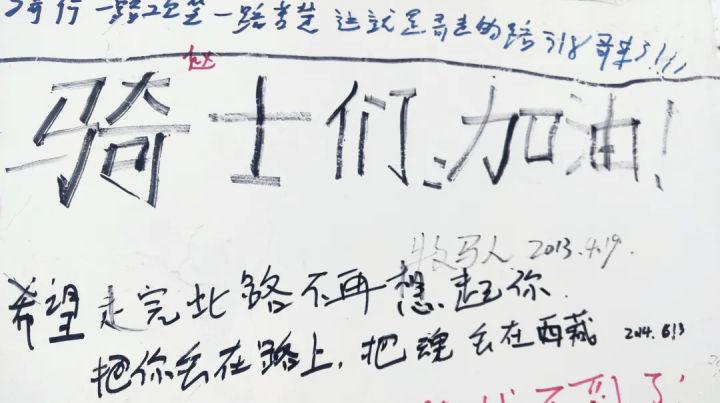 骑行一路欢笑一路苦楚 这就是哥走的路 318 哥来了!!!
赵
骑士们:加油!
牧马人 2013.4.19.
希望走完此路不再想起你.
把你丢在路上,把魂丢在西藏 2014.6.13
不到了